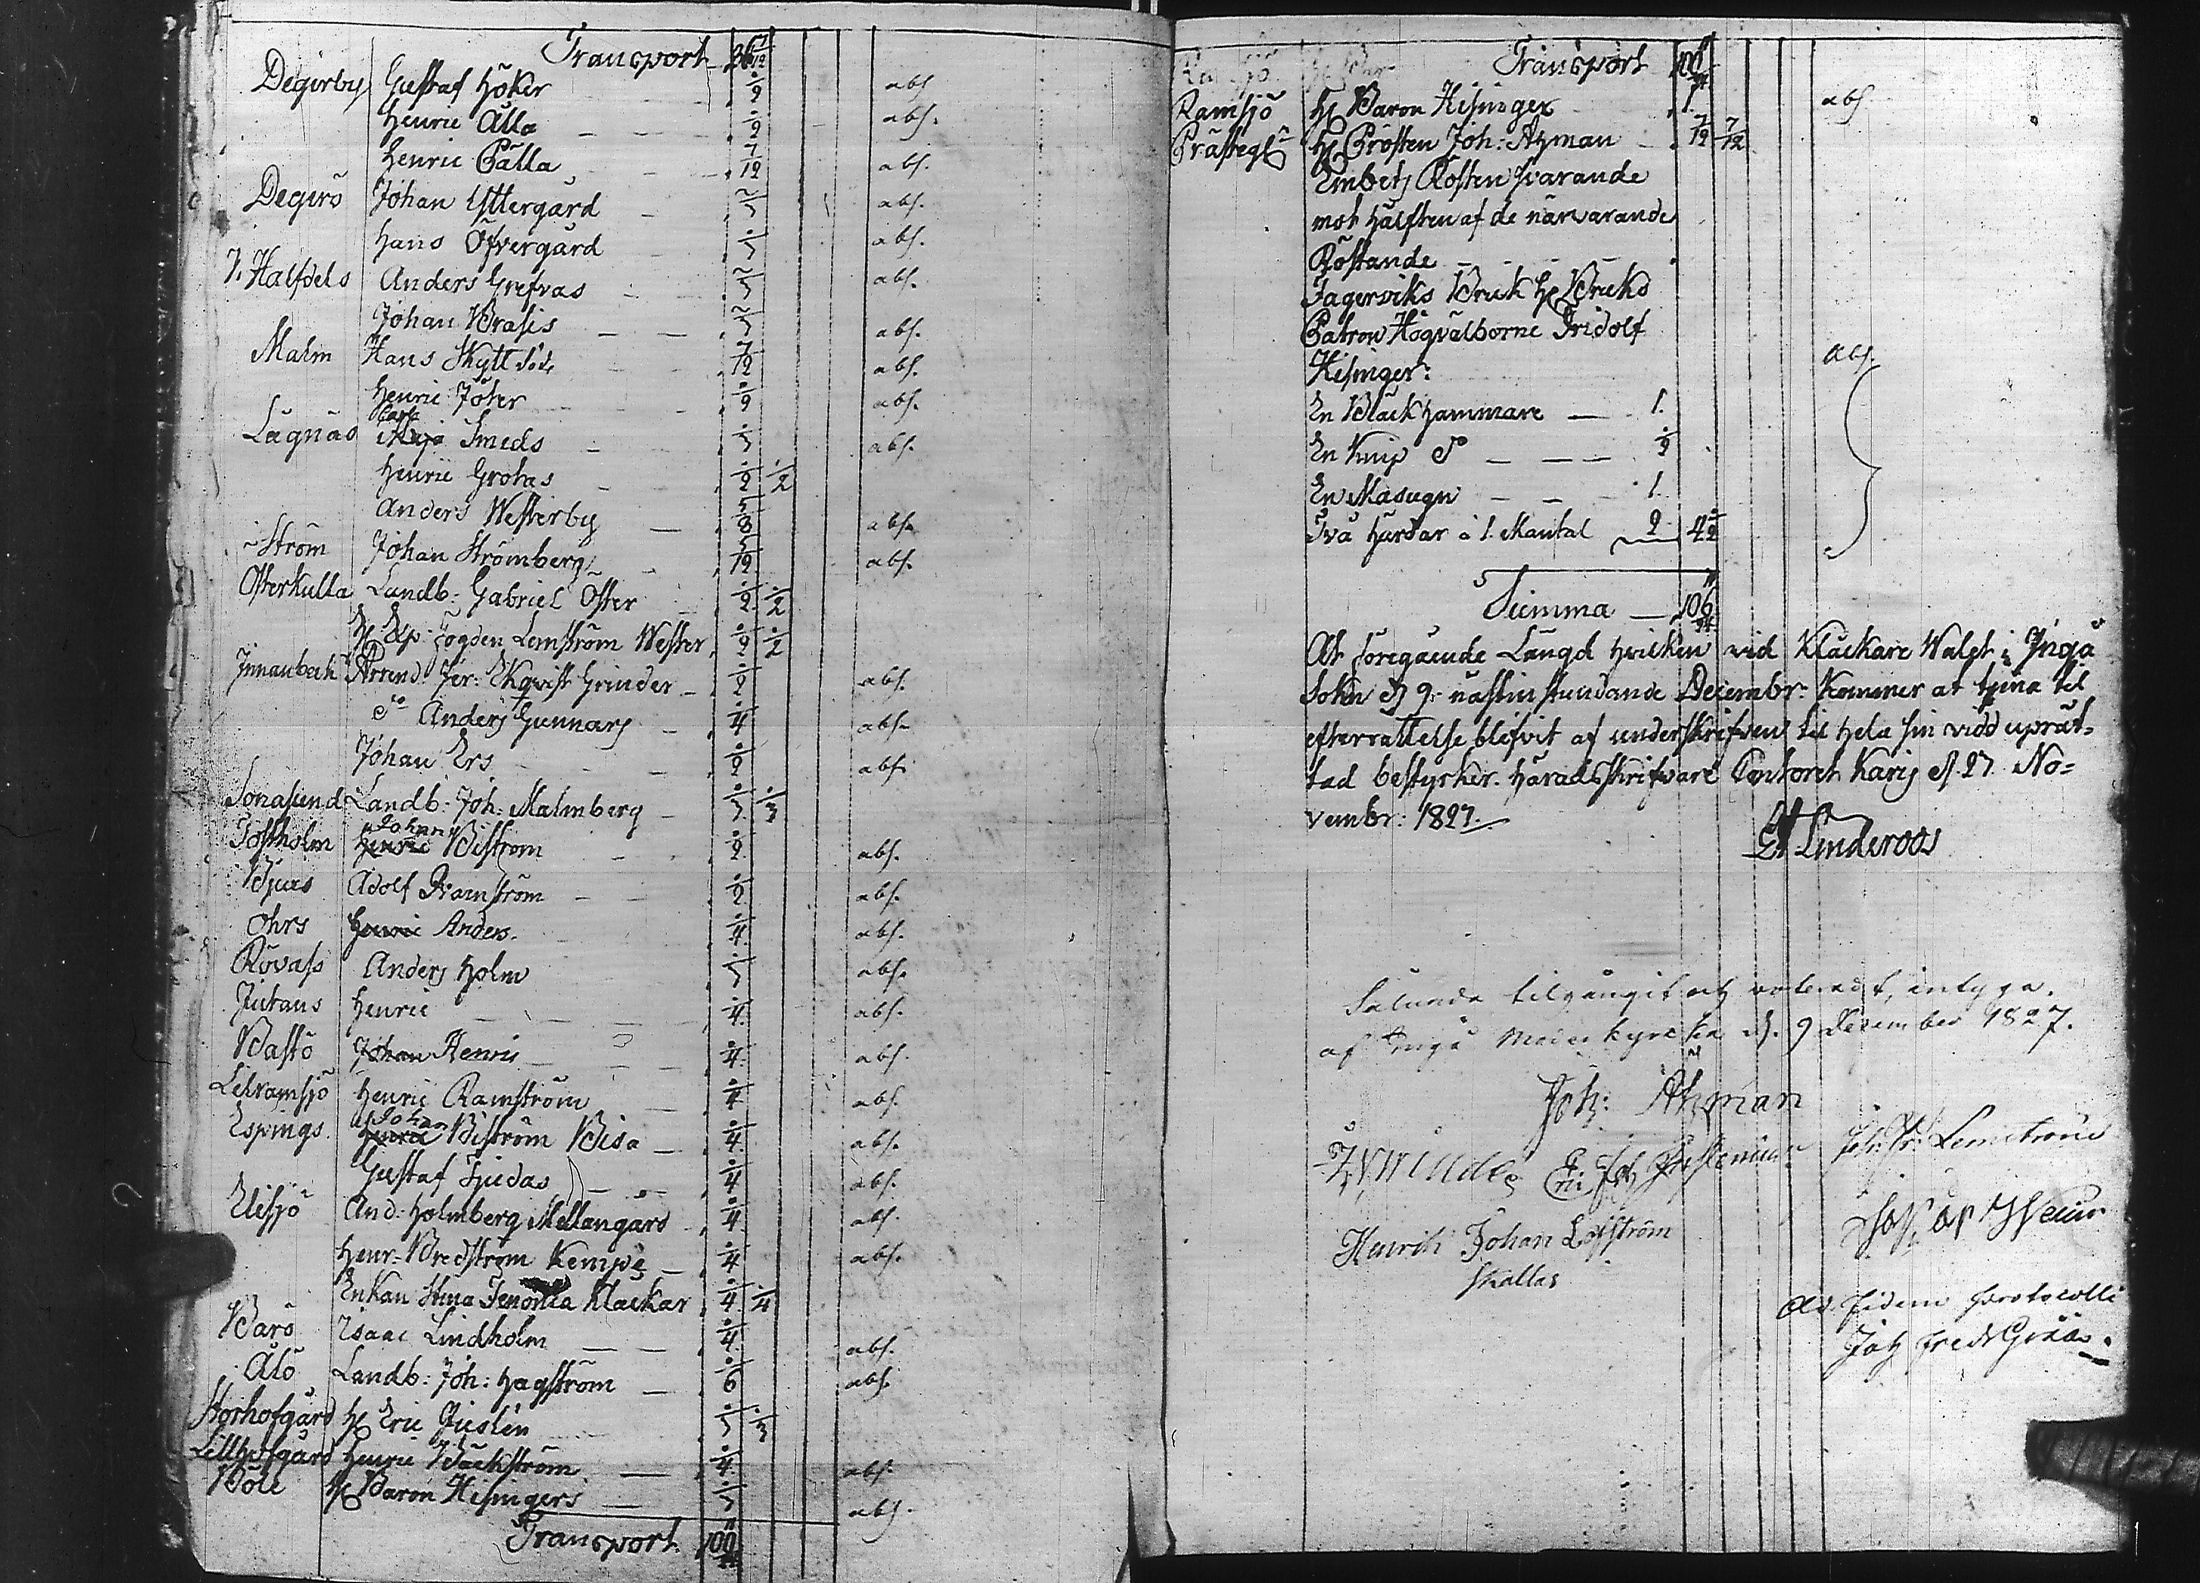 Transport
Degerby Gustaf Höker ½ abs.
Henric Alla ½ abs.
Henric Pälla 7/12 abs.
Degerö Johan Yttergård abs.
Hans Öfvergård abs.
V. Halfdels Anders Grefvas abs.
Johan Brasis abs.
Malm Hans Skytt 7/12 abs.
Henric Joter abs.
Carl
Lågnäs Smeds abs.
Henric Grotas ½ ½
Anders Westerby 5/8 abs.
Ström Johan Strömberg 5/12 abs.
Österkulla Landb: Gabriel Öster ½ ½
Hr Exp: Fogden Lemström Wester ½ ½
Innanbeck Arrend: Jer: Ekqvist Grinder ½ abs.
do Anders Gunnars ¼ abs.
Johan Ers ½ abs.
Jonasund Landb: Joh: Malmberg ⅓ ⅓
Johan
Jostholm Henric Biström ½ abs.
Bjurs Adolf Qvarnström ½ abs.
Ohrs Henric Anders. ¼ abs.
Rövass Anders Holm ⅓ abs.
Jutans Henric ¼ abs.
Bastö Johan Henric ¼ abs.
Lilramsjö Henric Ramström ¼ abs.
Johan
Espings Henric Biström Bisa ¼ abs.
Gustaf Tjudas ¼ abs.
Elisjö And: Holmberg Mellangård ¼ abs.
Henr: Bredström Kempe ¼ abs.
Enkan Stina Klackar ¼ ¼
Barö Isaac Lindholm ¼ abs.
Älö Landb: Joh: Hagström 1/6 abs.
Storhofgård Hr Eric Juslén ⅓ ⅓
Lillhofgård Henric Bäckström ¼ abs.
Böle Hr Baron Hisingers ⅓ abs.
Transport 100
Transport 100
Ramsjö Hr Baron Hisinger 1 abs.
Prästegå Hr Prosten Joh: Ahman 7/12 7/12
Embets Rösten svarande
mot hälften af de närvarande
Röstande
Fagerviks Bruk Hr Bruks
Patron Högvälborne Fridolf
Hisinger: abs.
En Bläckhammare 1.
En Knip do ½
En Masugn 1.
Två Härdar à 1. Mantal 2 4½
Summa 106
At föregående Längd hvilken vid Kläckare Walet i Ingå
Sokn d 9. nästinstundande Decembr: kommer at tjena til
efterrättelse blifvit af underskrifven til hela sin vidd uprät-
tad bestyrker. Häradsskrifvare Contoret Karis d 27 No-
vembr: 1827.
Linderoos
Sålunda tilgångit och voteradt, intyga.
af Ingå Moderkyrcka d. 9 December 1827.
Joh: Ahman
Joh: Fr: Lemström
Henrik Johan Löfström
Skallas
Ad fidem protocolli
Joh Fredr Gröös.